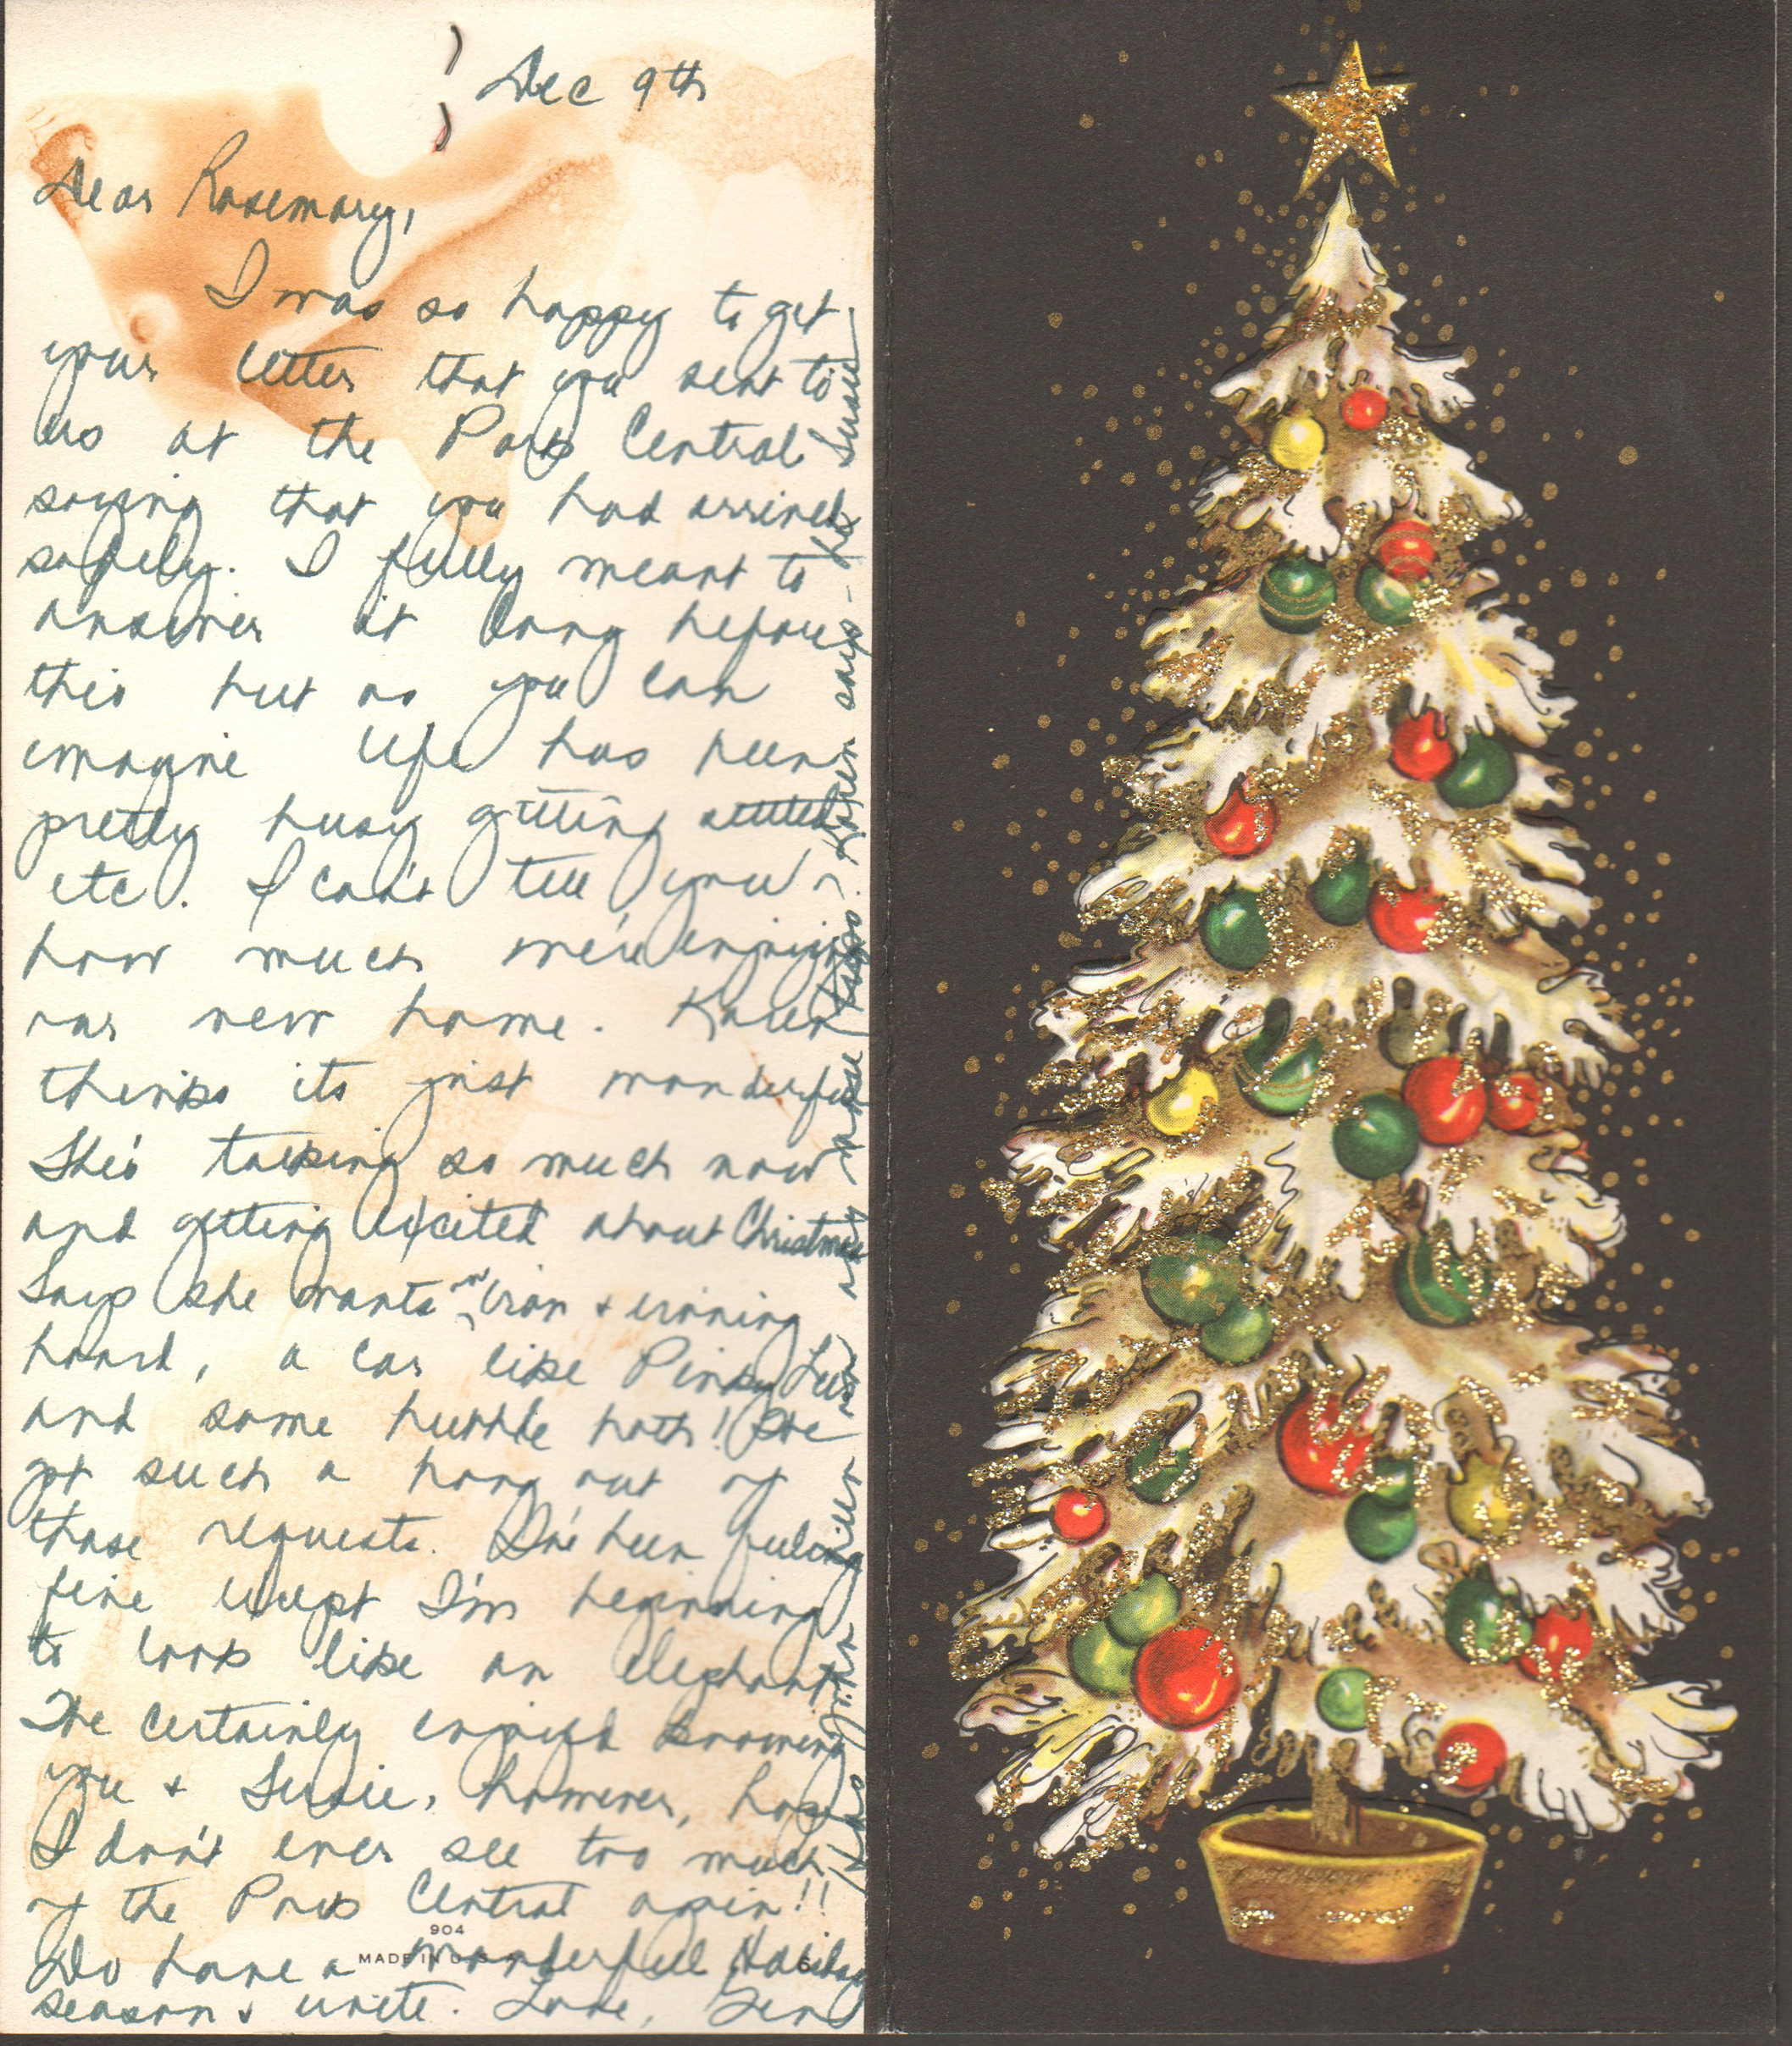 Dec 9th
Dear Rosemary,
I was so happy to get
your letter that you sent to
us at the Park Central
saying that you had arrived
safely. I fully meant to
answer it long before
this but as you can
imagine life has been
pretty busy getting settled
etc. I can't tell you
how much we're enjoying
our new home. Karen
thinks its just wonderful
She's talking so much now
and getting excited about Christmas
Says she wants an iron & ironing
board, a car like Pinky Lee's
and some bubble bath! We
got such a bang out of
those requests. I've been feeling
fine except I'm beginning
to look like an elephant.
We certainly enjoyed knowing
you & Susie, however, hope
I don't ever see too much
of the Park Central again!!
Do have a wonderful Holiday
season & write. Love, Gen
904
MADE IN U.S.A.
Has John any more Karen says - Susie